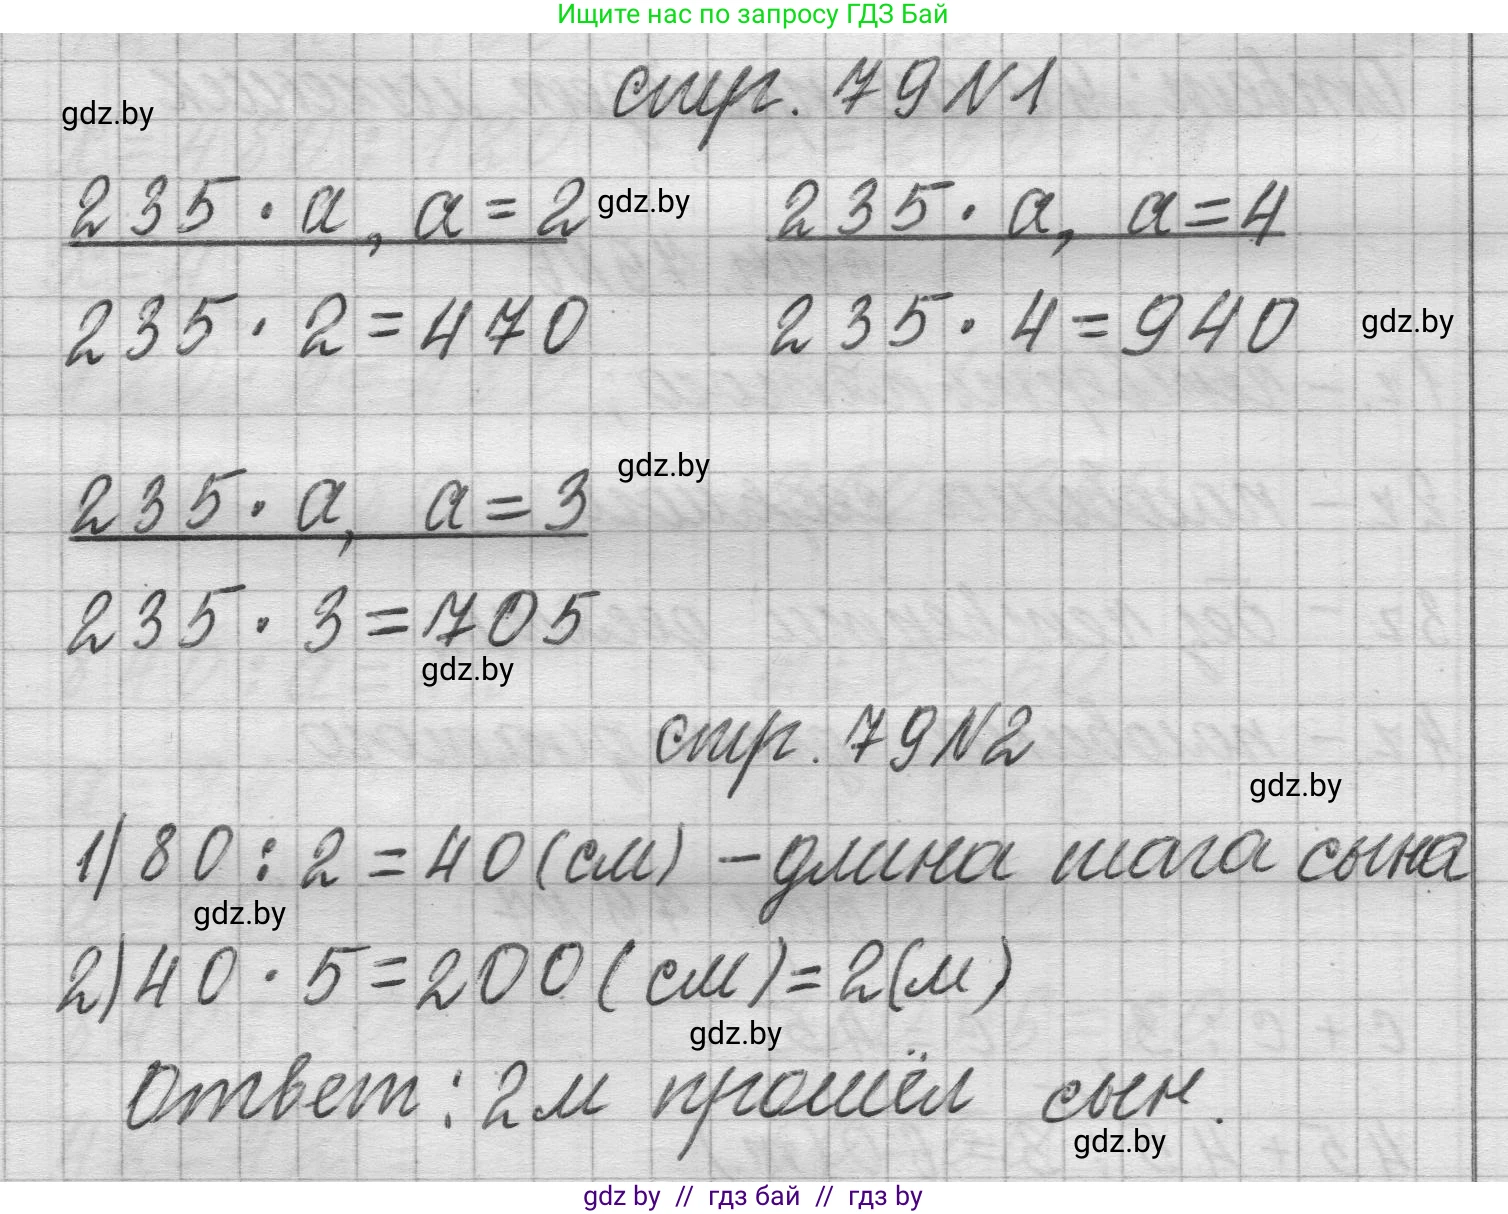 Ищите нас по запросу ГДЗ Бай
стр. 79 N1
gdz.by
235 · a, a = 2 gdz.by 235 · a, a = 4
235 · 2 = 470 235 · 4 = 940 gdz.by
235 · a, a = 3 gdz.by
235 · 3 = 705
gdz.by
стр. 79 N2
gdz.by
1) 80 : 2 = 40 (см) – длина шага сына
gdz.by
2) 40 · 5 = 200 (см) = 2 (м)
gdz.by
Ответ: 2 м прошёл сын.
gdz.by
gdz by // гдз бай // гдз by